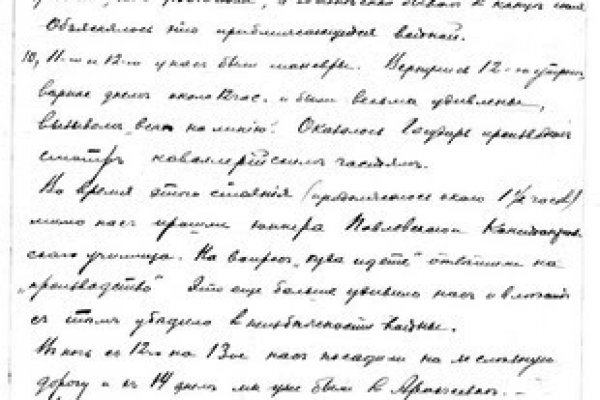 Объяснялось это приближающейся войной.
10, 11-го и 12-го у нас были маневры. Вернулись 12-го утром,
вернее днем около 12 час. и были весьма удивлены,
вызовом „всем на линию“. Оказалось Государь производит
смотр кавалерийским частям.
Во время этого стояния (продолжалось около 1½ часов)
мимо нас прошли юнкера Павловского
ского училища. На вопрос „куда идете“ ответили на
„производство“ Это еще больше удивило нас и
с тем убедило в неизбежности войны.
В ночь с 12го на 13ое нас посадили на железную
дорогу и в 14 днем мы уже были в